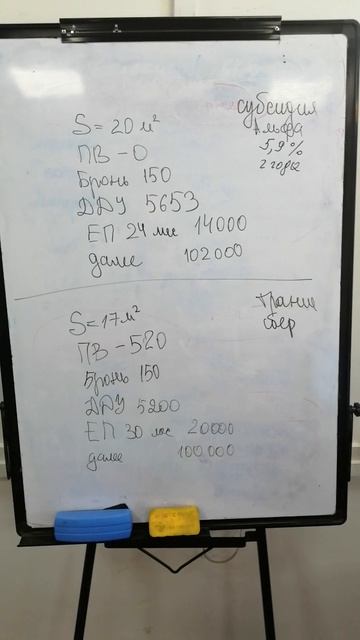 субсидия
Альфа
5,9%
2 годы
S = 20 м²
ПВ - 0
Бронь 150
ДДУ 5653
ЕП 24 мес 14000
далее 102000
Транш
сбер
S = 17 м²
ПВ - 520
Бронь 150
ДДУ 5200
ЕП 30 мес 20000
далее 100.000